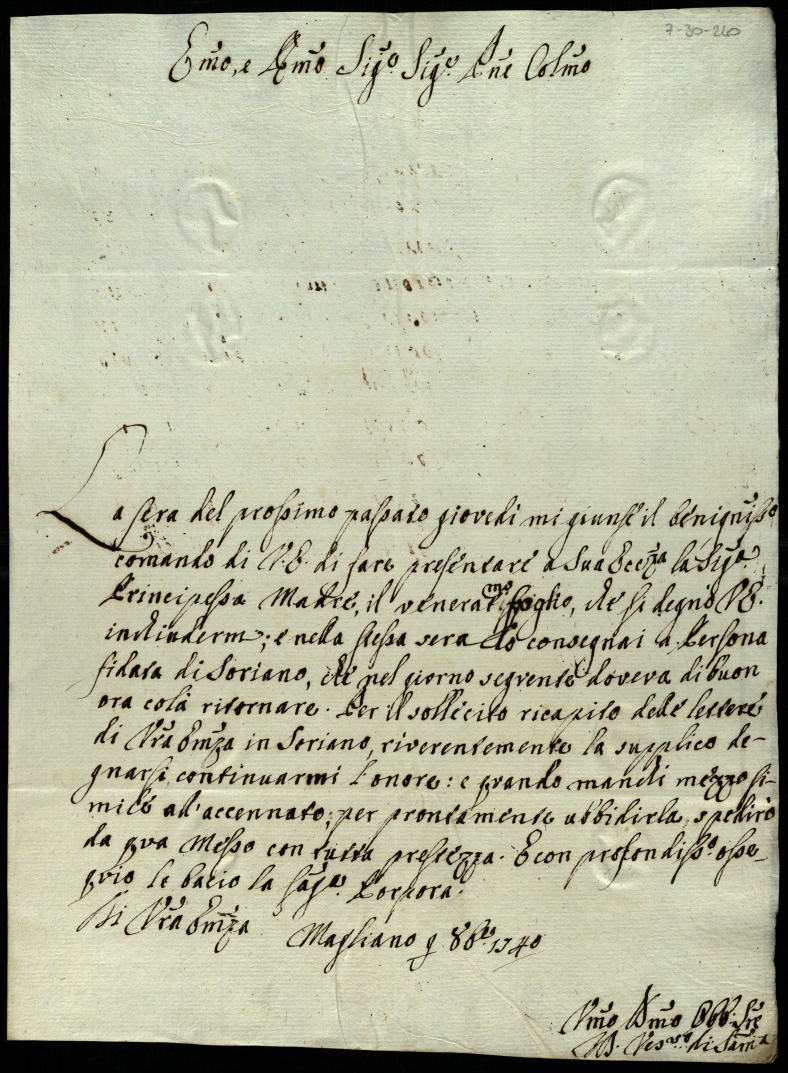 7-30-240
Emo, e Rmo Sigre Sigre Pne Colmo
La sera del prossimo passato giovedi mi giunse il benignisso
comando di V.E. di fare presentare a Sua Ecceza la Sigra
Principessa Madre, il veneratmo foglio, che si degnò V.E.
inchiudermi; e nella stessa sera lo consegnai a Persona
fidata di Soriano, che nel giorno seguente doveva di buon
ora colà ritornare. Per il sollecito ricapito delle lettere
di Vra Emza in Soriano, riverentemente la supplico de-
gnarsi continuarmi l'onore: e quando manchi mezzo si-
mile all'accennato, per prontamente ubbidirla, spedirò
da qua Messo con tutta prestezza. E con profondisso osse-
quio le bacio la Sagra Porpora.
Di Vra Emza
Magliano 9 8bre 1740
Vmo Dmo Obb. Sre
Vesvo di Sabina